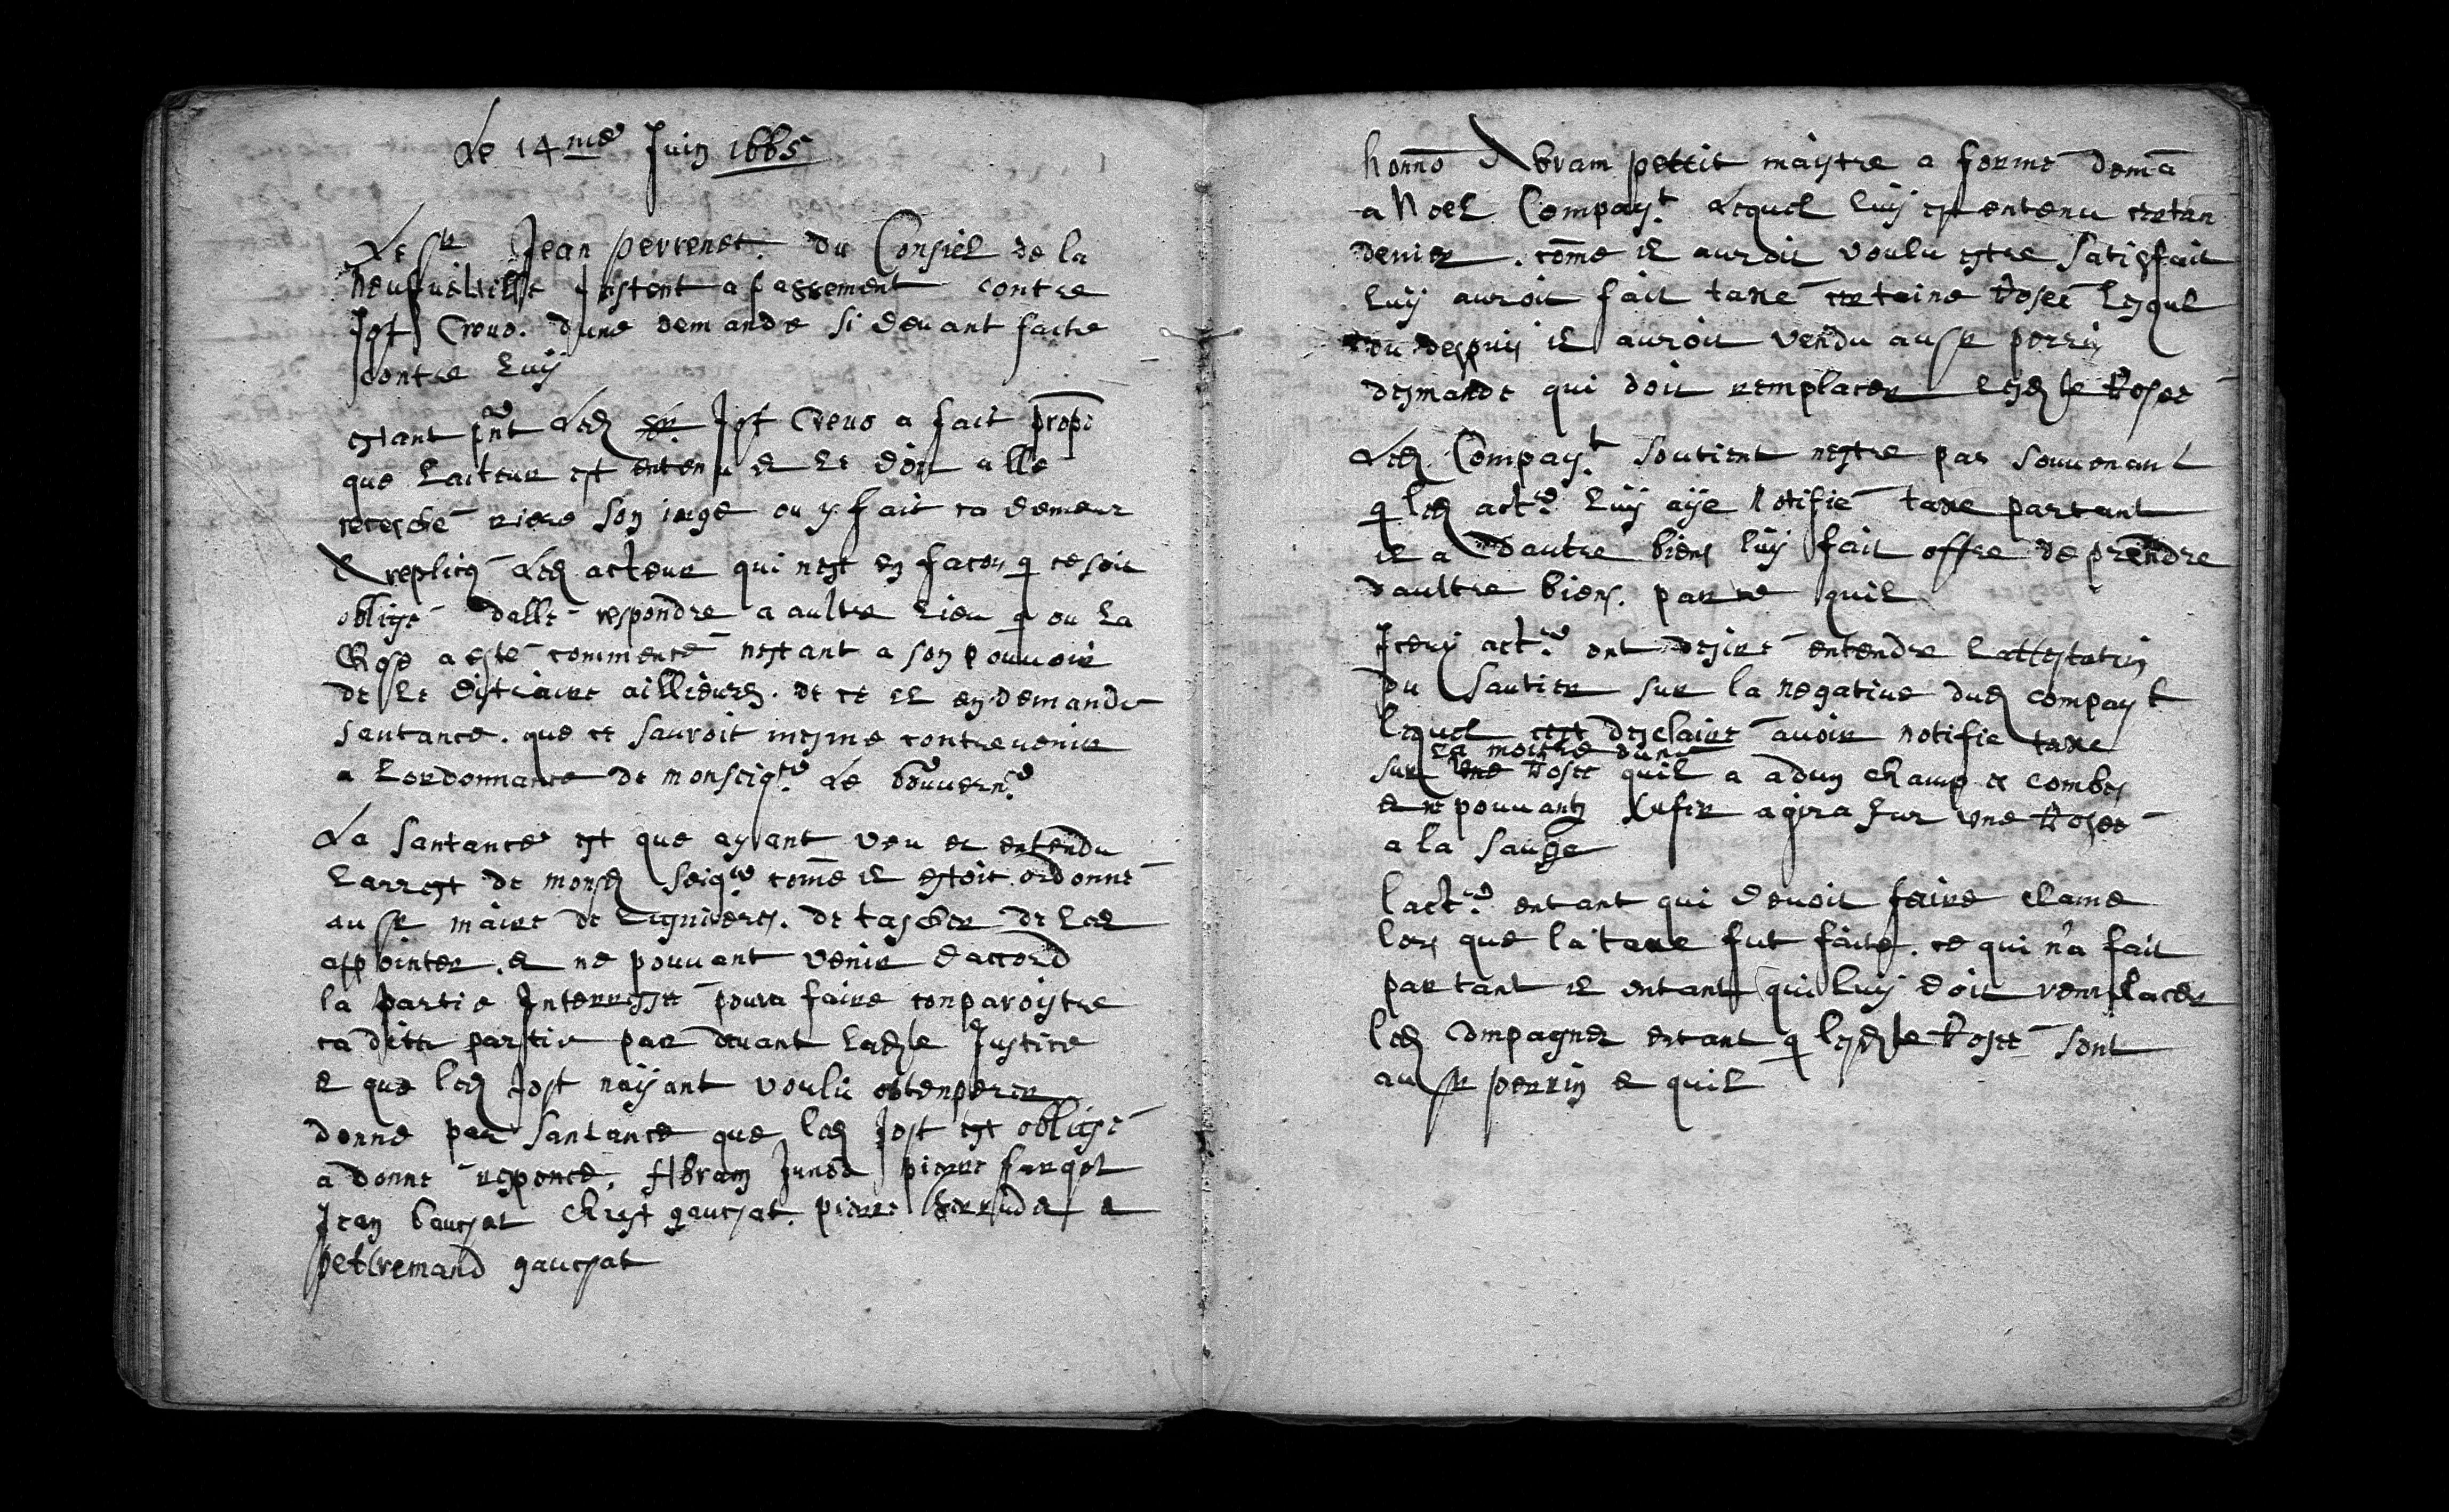 Le 14me Juin 1665
Le Sr Jean perrenet. du Consiel de la
neufueville Instent a passement contre
Jost Creuo. dune demande si deuant faitte
contre luy
estant pnt Led Jost Creuo a fait propo
que Lacteur est entenu & le doit alle
recesche riere son iuge ou y fait sa demeur
A replicq Led acteur qui nest en facon q ce soit
oblige dalle respondre a aultre lieu q ou La
Chose a este commence nestant a son pouuoir
de Le distraire allieurs. de ce il en demande
santance. que ce sauroit mesme contreuenir
a Lordonnance de monseigr Le Gouuernr
La santance est que ayant veu et entendu
Larrest de mond Seigr come il estoit ordonne
au Sr maire de Lignieres. de tascher de Les
appointer. & ne pouuant venir daccord
la partie Interresse poura faire conparoistre
sa ditte partie par deuant Ladte Justice
& que led Jost nayant voulu obtenperer
donne par santance que led Jost est oblige
a donne responce. Abram Junod pierre
Jean gauchat Chrest gauchat. pierre &
petremand gauchat
honno Abram pettit maytre a forme doma
a Noel Compagt Lequel luy est entenu certan
denier. come il auroit voulu estre satisfait
luy auroit fait taxe certaine Pose Lesquel
ou despuis il auroit vendu au Sr perrin
desmande qui doit remplacer lesdte Pose
Led Compagt soutient nestre pas souuenant
q led actr luy aye Notifie taxe partant
il a dautre biens luy fait offre de prendre
daultre biens. par ce quil
Iceuy actr ont desire entendre lattestation
du sautier sur la negatiue dud compagt
lequel cest desclaire auoir notifie taxe
la moitie dune
sur une Pose quil a a dun champ es combes
& ne pouuant sufir agira sur une Pose
a la sauge
lactr entant qui deuoit faire clame
lors que la taxe fut faite. ce qui n'a fait
partant il entant qui luy doit remplacer
led compagner estant q lesdte Pose sont
au Sr perrin & quil